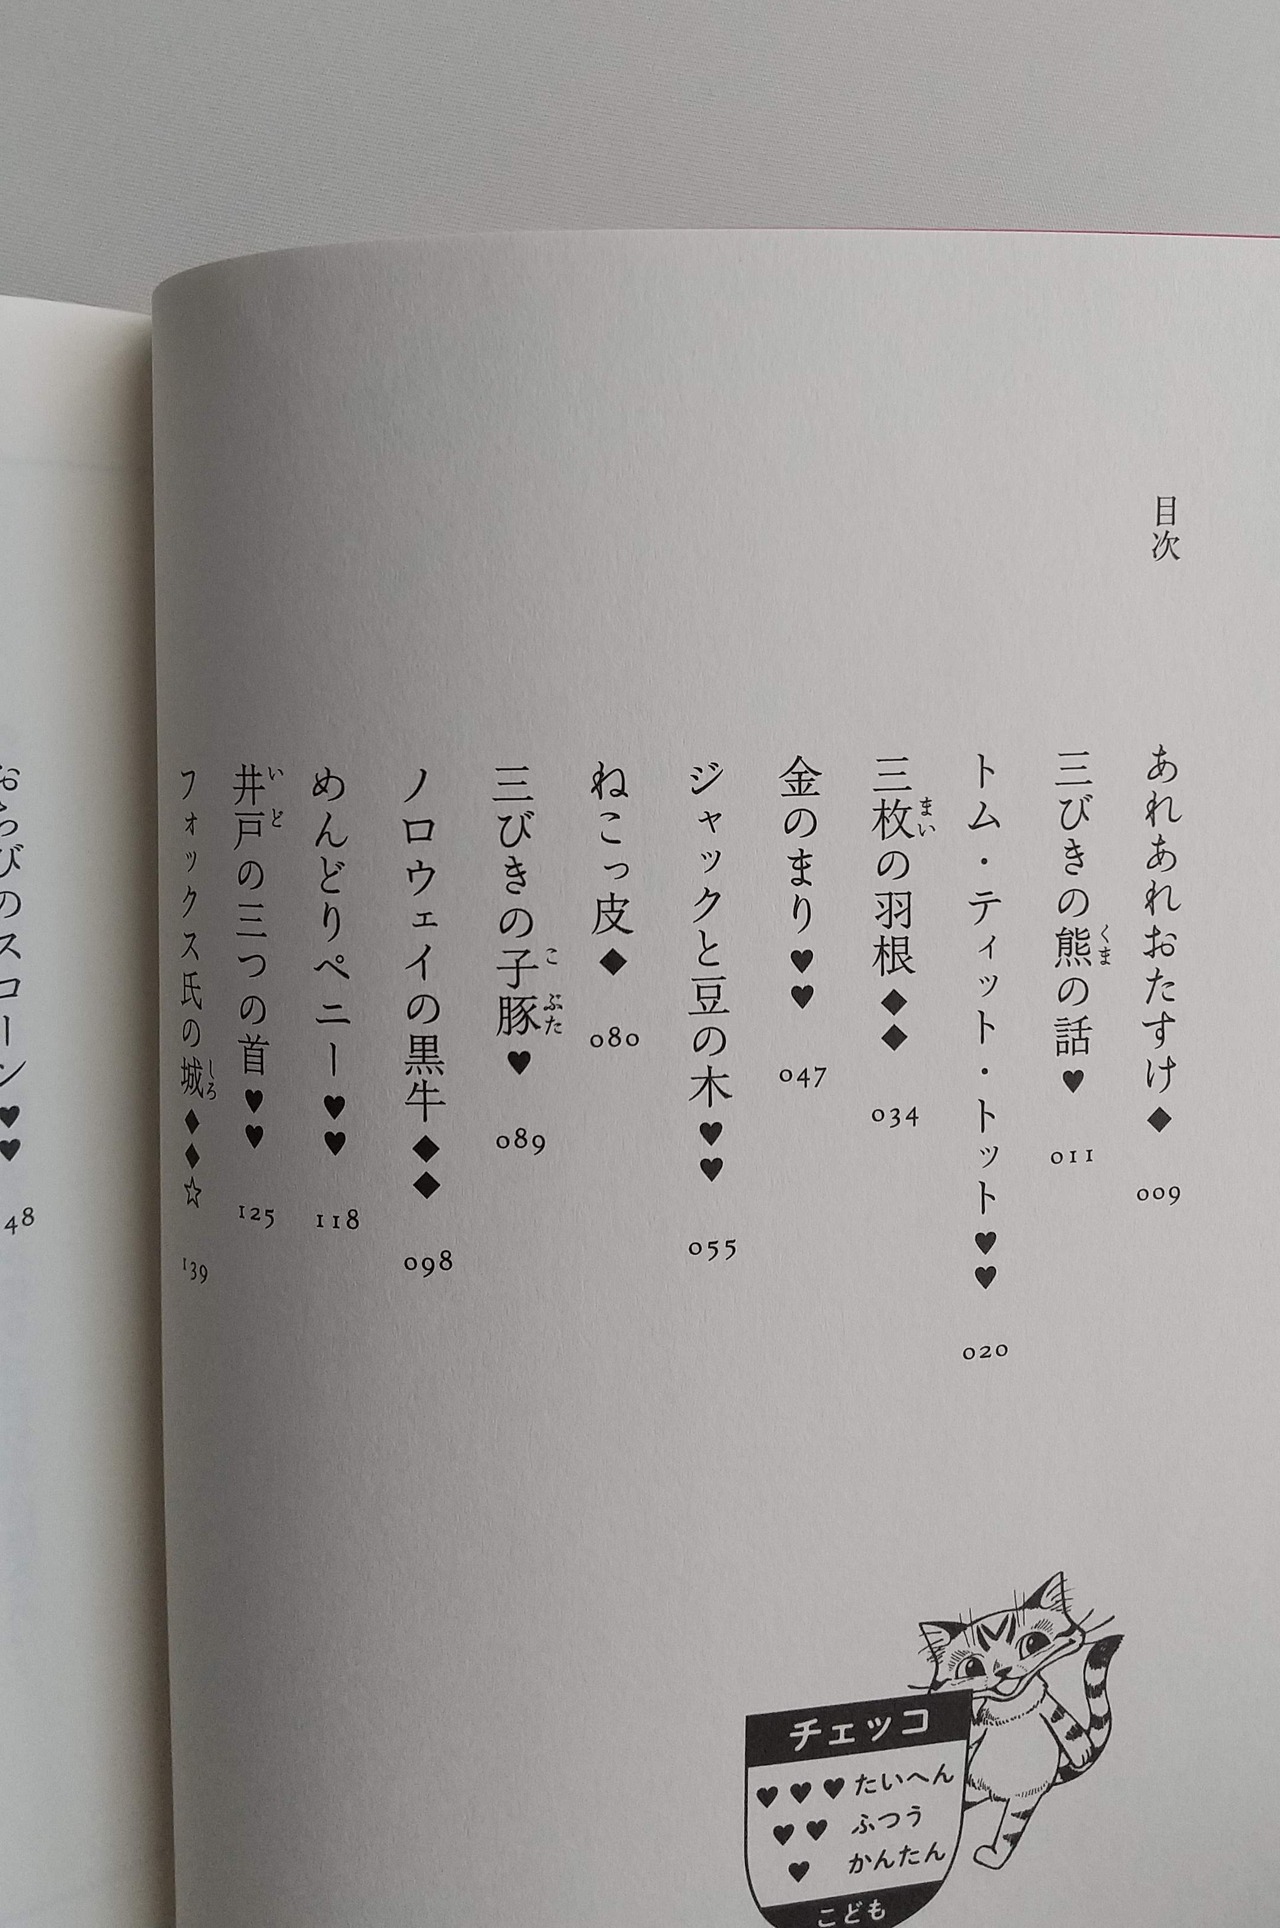 目次
あれあれおたすけ◆ 009
三びきの熊の話♥ 011
くま
トム・ティット・トット♥♥ 020
三枚の羽根◆◆ 034
まい
金のまり♥♥ 047
ジャックと豆の木♥♥ 055
ねこっ皮◆ 080
三びきの子豚♥ 089
こぶた
ノロウェイの黒牛◆◆ 098
めんどりペニー♥♥ 118
井戸の三つの首♥♥ 125
いど
フォックス氏の城◆◆☆ 139
しろ
おちびのスコーン♥♥ 48
チェッコ
♥♥♥ たいへん
♥♥ ふつう
♥ かんたん
こども